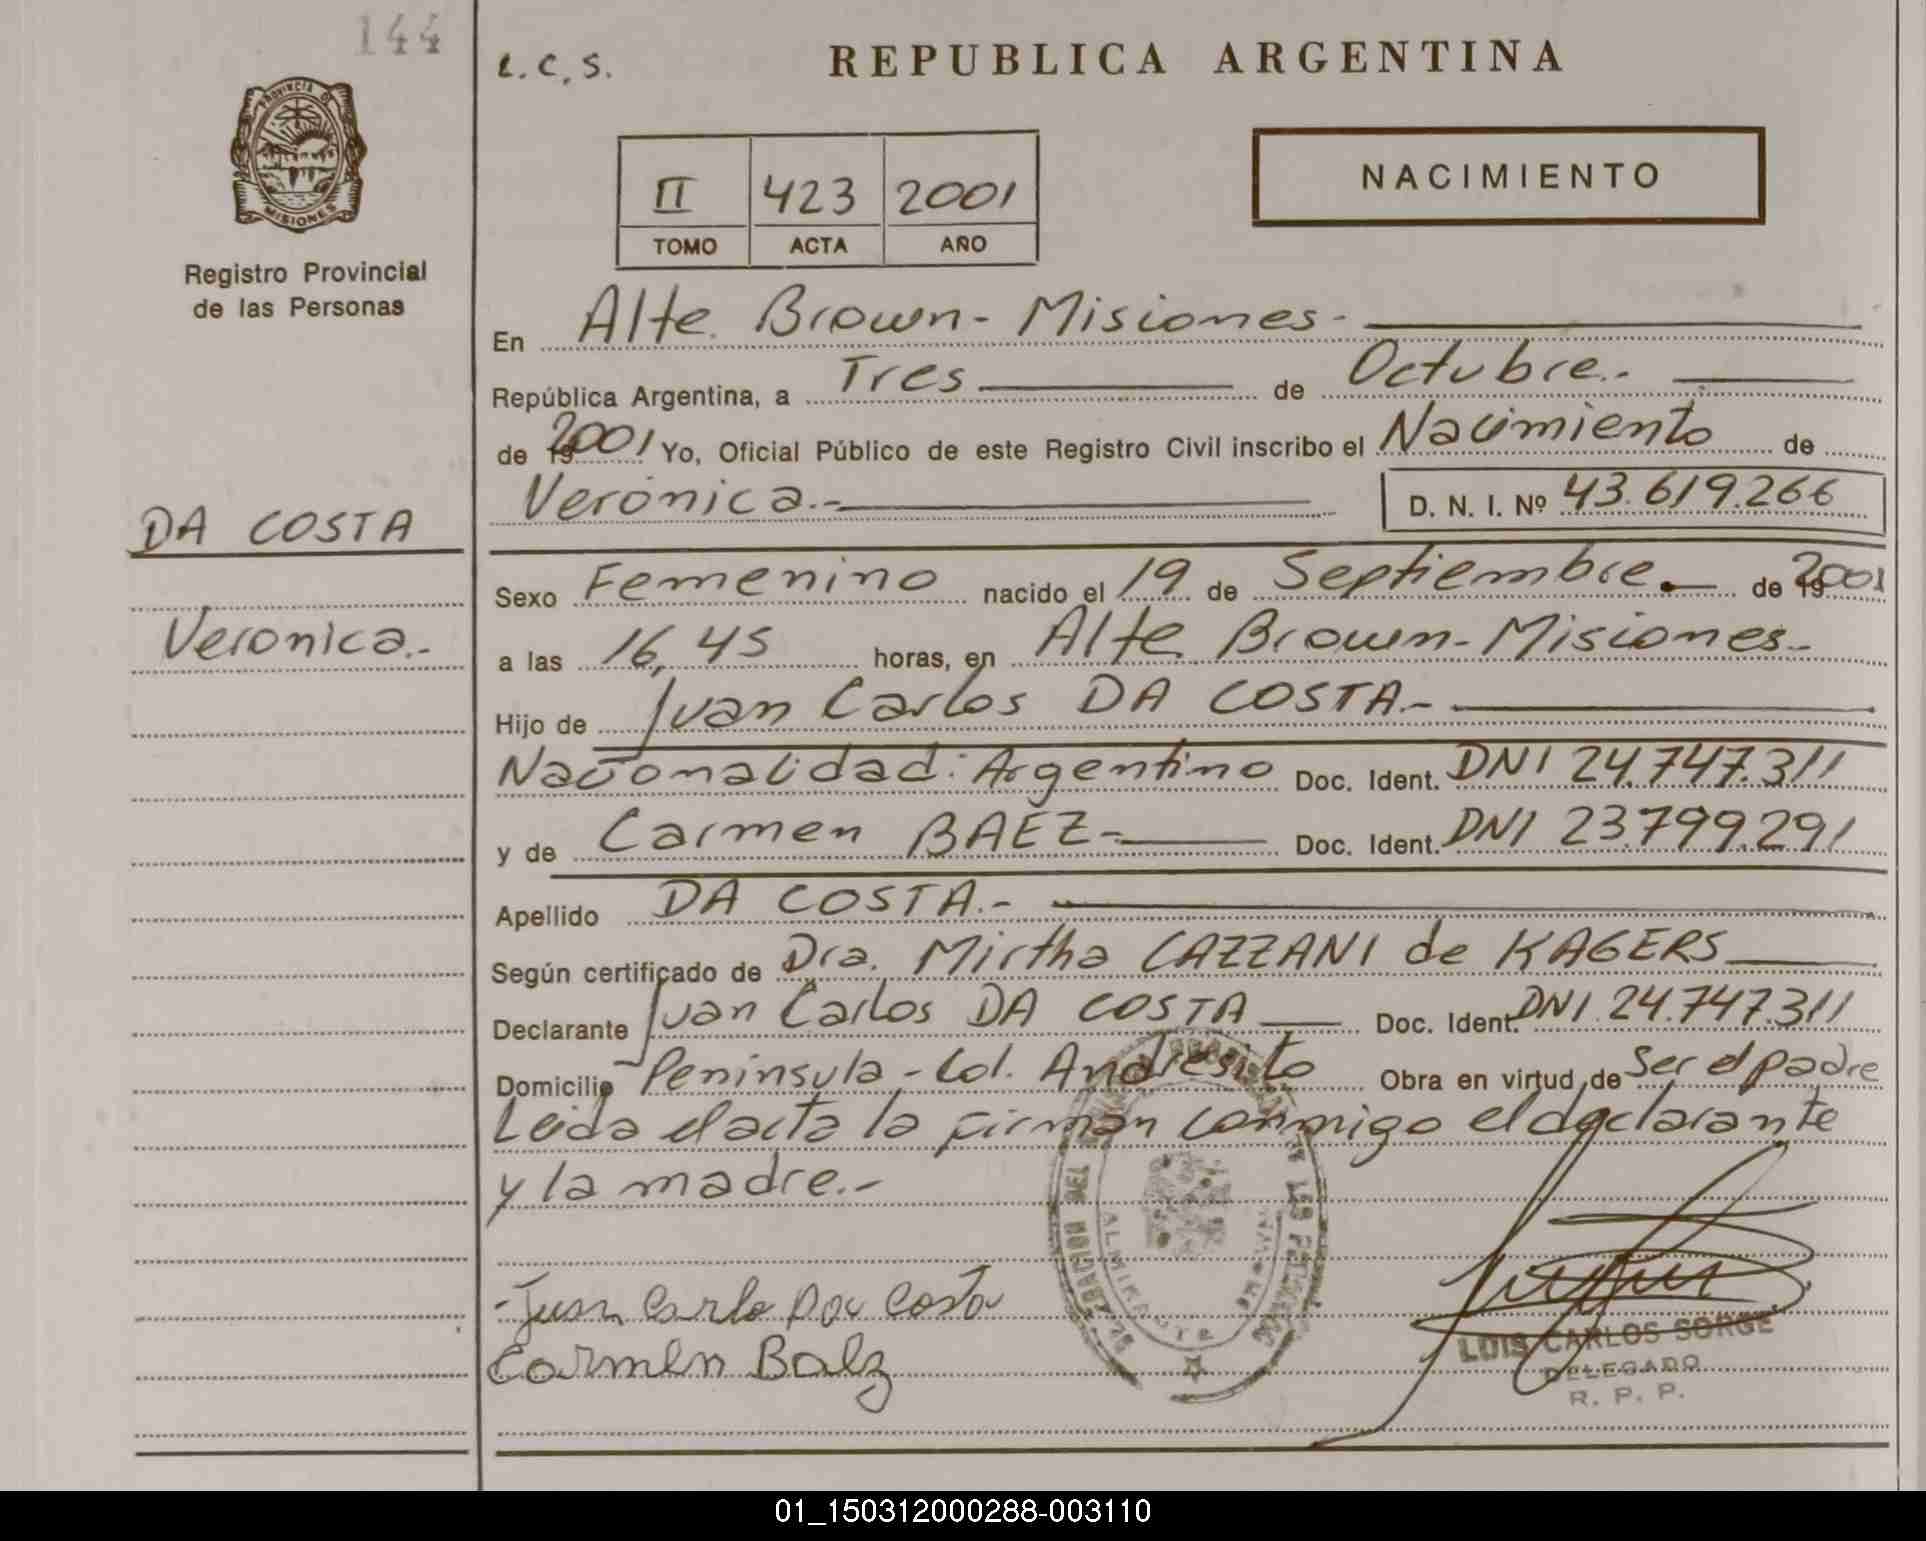 144
L.C.S.
REPUBLICA ARGENTINA
PROVINCIA DE
MISIONES
Registro Provincial
de las Personas
II 423 2001
TOMO ACTA AÑO
NACIMIENTO
En Alte. Brown - Misiones -
República Argentina, a Tres de Octubre.-
de 2001 Yo, Oficial Público de este Registro Civil inscribo el Nacimiento de
Verónica.- D. N. I. Nº 43.619.266
DA COSTA
Veronica.-
Sexo Femenino nacido el 19 de Septiembre.- de 2001
a las 16,45 horas, en Alte Brown - Misiones.-
Hijo de Juan Carlos DA COSTA.-
Nacionalidad: Argentino Doc. Ident. DNI 24.747.311
y de Carmen BAEZ- Doc. Ident. DNI 23.799.291
Apellido DA COSTA.-
Según certificado de Dra. Mirtha CAZZANI de KAGERS
Declarante Juan Carlos DA COSTA Doc. Ident. DNI 24.747.311
Domicilio Peninsula - Col. Andresito Obra en virtud de Ser el padre
Leida el acta la firman conmigo el declarante
y la madre.-
- Juan Carlo Da Costa
Carmen Baez
LUIS CARLOS SORGE
DELEGADO
R. P. P.
01_150312000288-003110